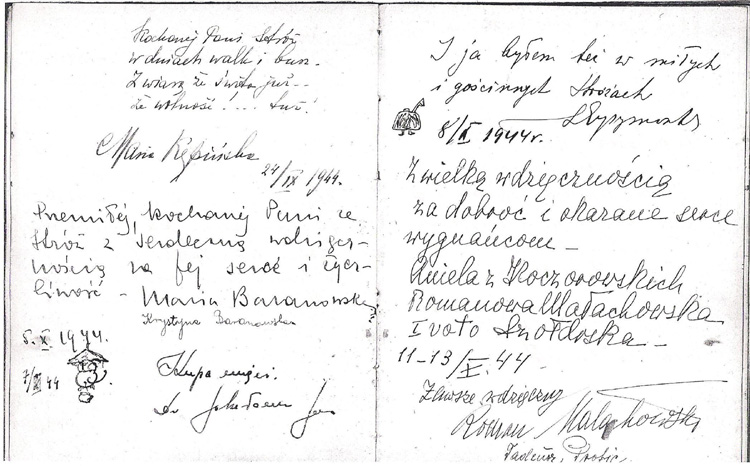 Kochanej Pani Stróż
w dniach walk i burz.
Z wiarą że świta już...
że wolność!... tuż!
Maria Kępińska
24/IX 1944.
Przemiłej, kochanej Pani ze
Stróż z serdeczną wdzięcz-
nością za Jej serce i życz-
liwość -
Maria Baranowska
Krystyna Baranowska
5.X 1944.
7/XI 44
Kupa mięci.
Dr
I ja byłem też w miłych
i gościnnych Stróżach
8/X 1944r.
Z wielką wdzięcznością
za dobroć i okazane serce
wygnańcom -
Aniela z Koczorowskich
Romanowa Małachowska
I voto Szołdrska -
11-13/X. 44
Zawsze wdzięczny
Roman Małachowski
Tadeusz